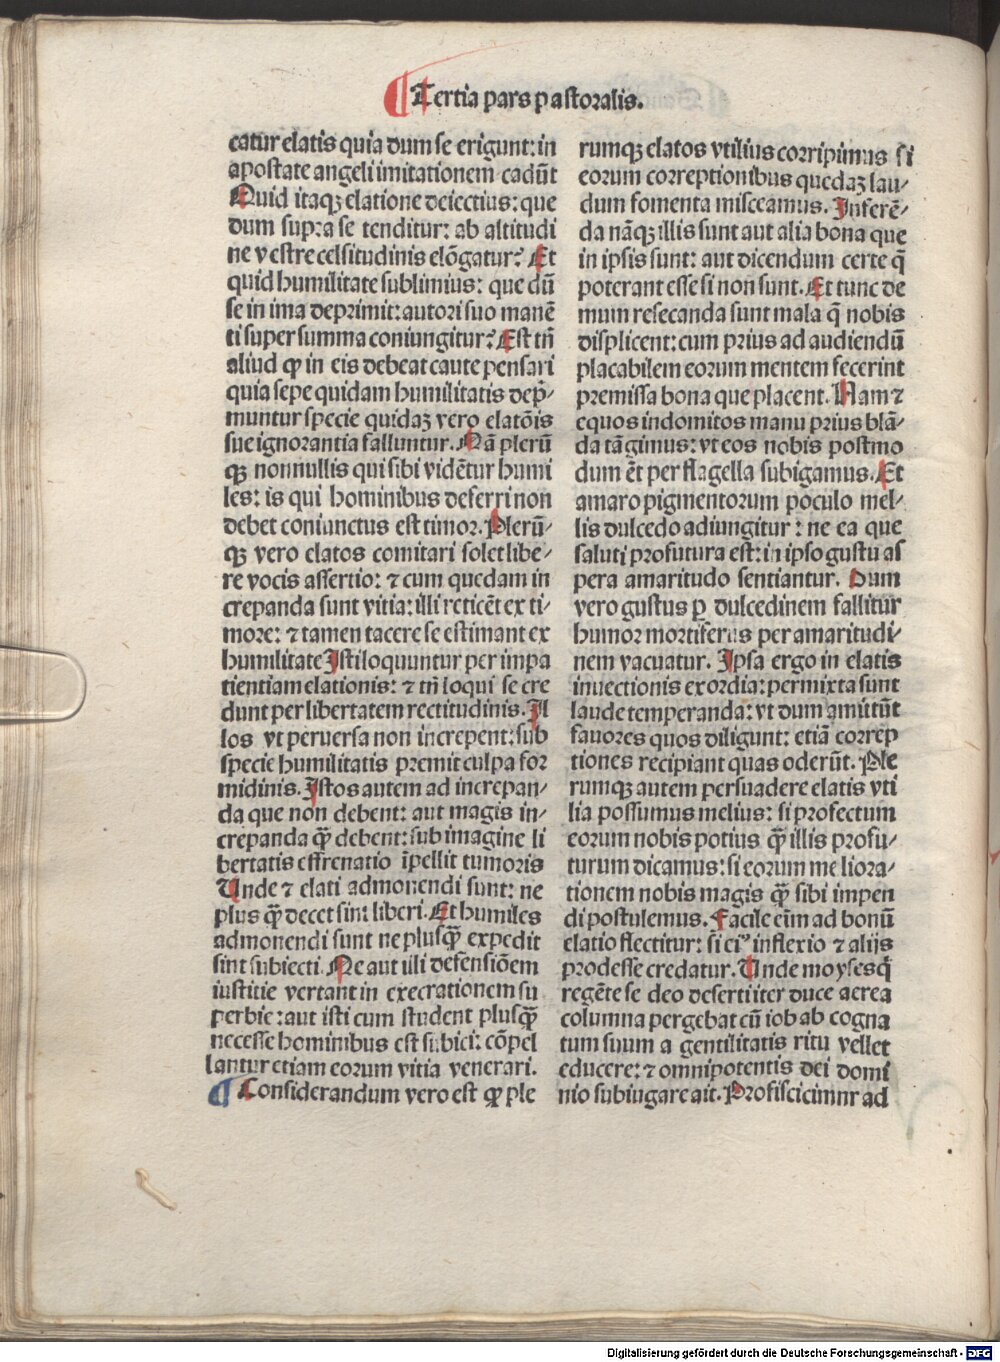 ¶ Tertia pars pastoralis.
catur elatis quia dum se erigunt: in
apostate angeli imitationem cadūt
Quid itaqꝫ elatione deiectius: que
dum supra se tenditur: ab altitudi
ne vestre celsitudinis elōgatur? Et
quid humilitate sublimius: que dū
se in ima deprimit: autori suo manē
ti super summa coniungitur? Est tn̄
aliud ꝙ in eis debeat caute pensari
quia sepe quidam humilitatis dep̄-
muntur specie quidaꝫ vero elatōis
sue ignorantia falluntur. Nā plerū
qꝫ nonnullis qui sibi vidētur humi
les: is qui hominibus deferri non
debet coniunctus est timor. Plerū-
qꝫ vero elatos comitari solet libe-
re vocis assertio: ⁊ cum quedam in
crepanda sunt vitia: illi reticēt ex ti-
more: ⁊ tamen tacere se estimant ex
humilitate Isti loquuntur per impa
tientiam elationis: ⁊ tn̄ loqui se cre
dunt per libertatem rectitudinis. Il
los vt peruersa non increpent: sub
specie humilitatis premit culpa for
midinis. Istos autem ad increpan-
da que non debent: aut magis in-
crepanda qꝫ̄ debent: sub imagine li
bertatis effrenatio īpellit tumoris
Unde ⁊ elati admonendi sunt: ne
plus qꝫ̄ decet sint liberi. Et humiles
admonendi sunt ne plusqꝫ̄ expedit
sint subiecti. Ne aut illi defensiōem
iustitie vertant in execrationem su
perbie: aut isti cum student plusqꝫ̄
necesse hominibus est subici: cōpel
lantur etiam eorum vitia venerari.
¶ Considerandum vero est ꝙ ple
rumqꝫ elatos vtilius corripimus si
eorum correptionibus quedaꝫ lau-
dum fomenta misceamus. Inferē-
da nāqꝫ illis sunt aut alia bona que
in ipsis sunt: aut dicendum certe q̄
poterant esse si non sunt. Et tunc de
mum resecanda sunt mala q̄ nobis
displicent: cum prius ad audiendū
placabilem eorum mentem fecerint
premissa bona que placent. Nam ⁊
equos indomitos manu prius blā-
da tāgimus: vt eos nobis postmo
dum ēt per flagella subigamus. Et
amaro pigmentorum poculo mel-
lis dulcedo adiungitur: ne ea que
saluti profutura est: in ipso gustu as
pera amaritudo sentiantur. Dum
vero gustus ꝑ dulcedinem fallitur
humor mortiferus per amaritudi-
nem vacuatur. Ipsa ergo in elatis
inuectionis exordia: permixta sunt
laude temperanda: vt dum amittūt
fauores quos diligunt: etiā correp
tiones recipiant quas oderūt. Ple
rumqꝫ autem persuadere elatis vti
lia possumus melius: si profectum
eorum nobis potius qꝫ̄ illis profu-
turum dicamus: si eorum meliora-
tionem nobis magis qꝫ̄ sibi impen
di postulemus. Facile eīm ad bonū
elatio flectitur: si eiꝰ inflexio ⁊ alijs
prodesse credatur. Unde moyses q̄
regēte se deo deserti iter duce aerea
columna pergebat cū iob ab cogna
tum suum a gentilitatis ritu vellet
educere: ⁊ omnipotentis dei domi
nio subiugare ait. Profiscicimnr ad
Digitalisierung gefördert durch die Deutsche Forschungsgemeinschaft - DFG